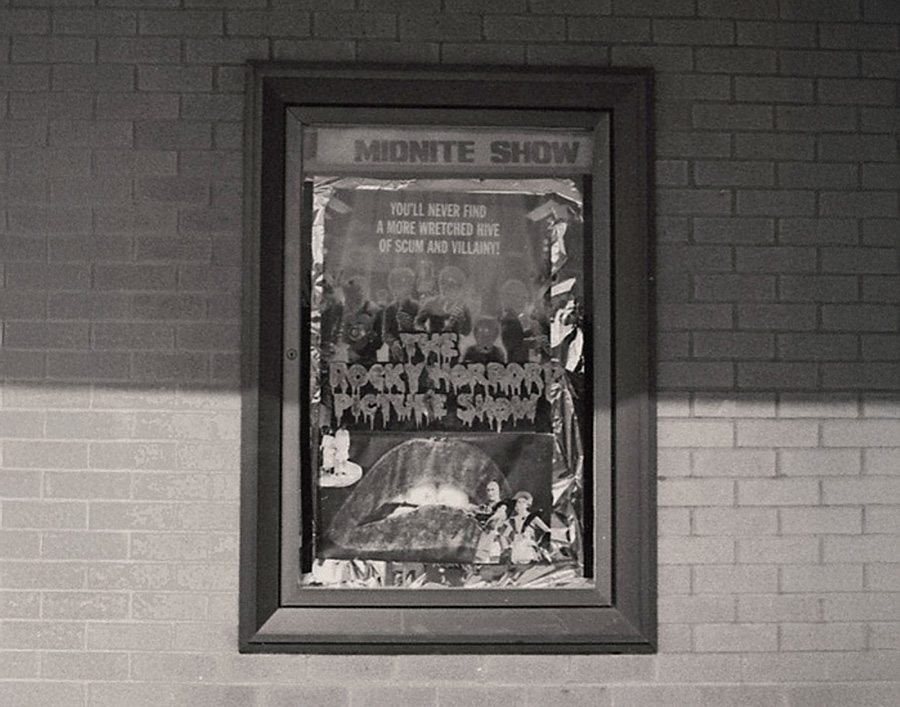 MIDNITE SHOW
YOU'LL NEVER FIND
A MORE WRETCHED HIVE
OF SCUM AND VILLAINY!
THE
ROCKY HORROR
PICTURE SHOW